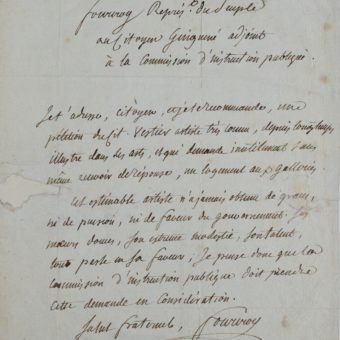 fourcroy Représ. du peuple
au Citoyen Guiguené adjoint
à la Commission d'instruction publique.
Je t'adresse, citoyen, et je te recommande, une
pétition du Cit. Vestier artiste très connu, depuis longtemps,
illustre dans les arts, et qui demande inutilement, sans
même recevoir de réponse, un logement aux galleries.
cet estimable artiste n'a jamais obtenu de grace,
ni de pension, ni de faveur du gouvernement. Ses
mœurs douces, son extreme modestie, son talent,
tout parle en sa faveur, Je pense donc que la
commission d'instruction publique doit prendre
cette demande en Considération.
Salut fraternel, Fourcroy